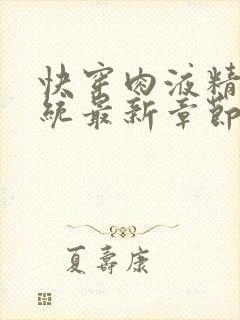 快穿肉液精
统最新章節
夏壽康